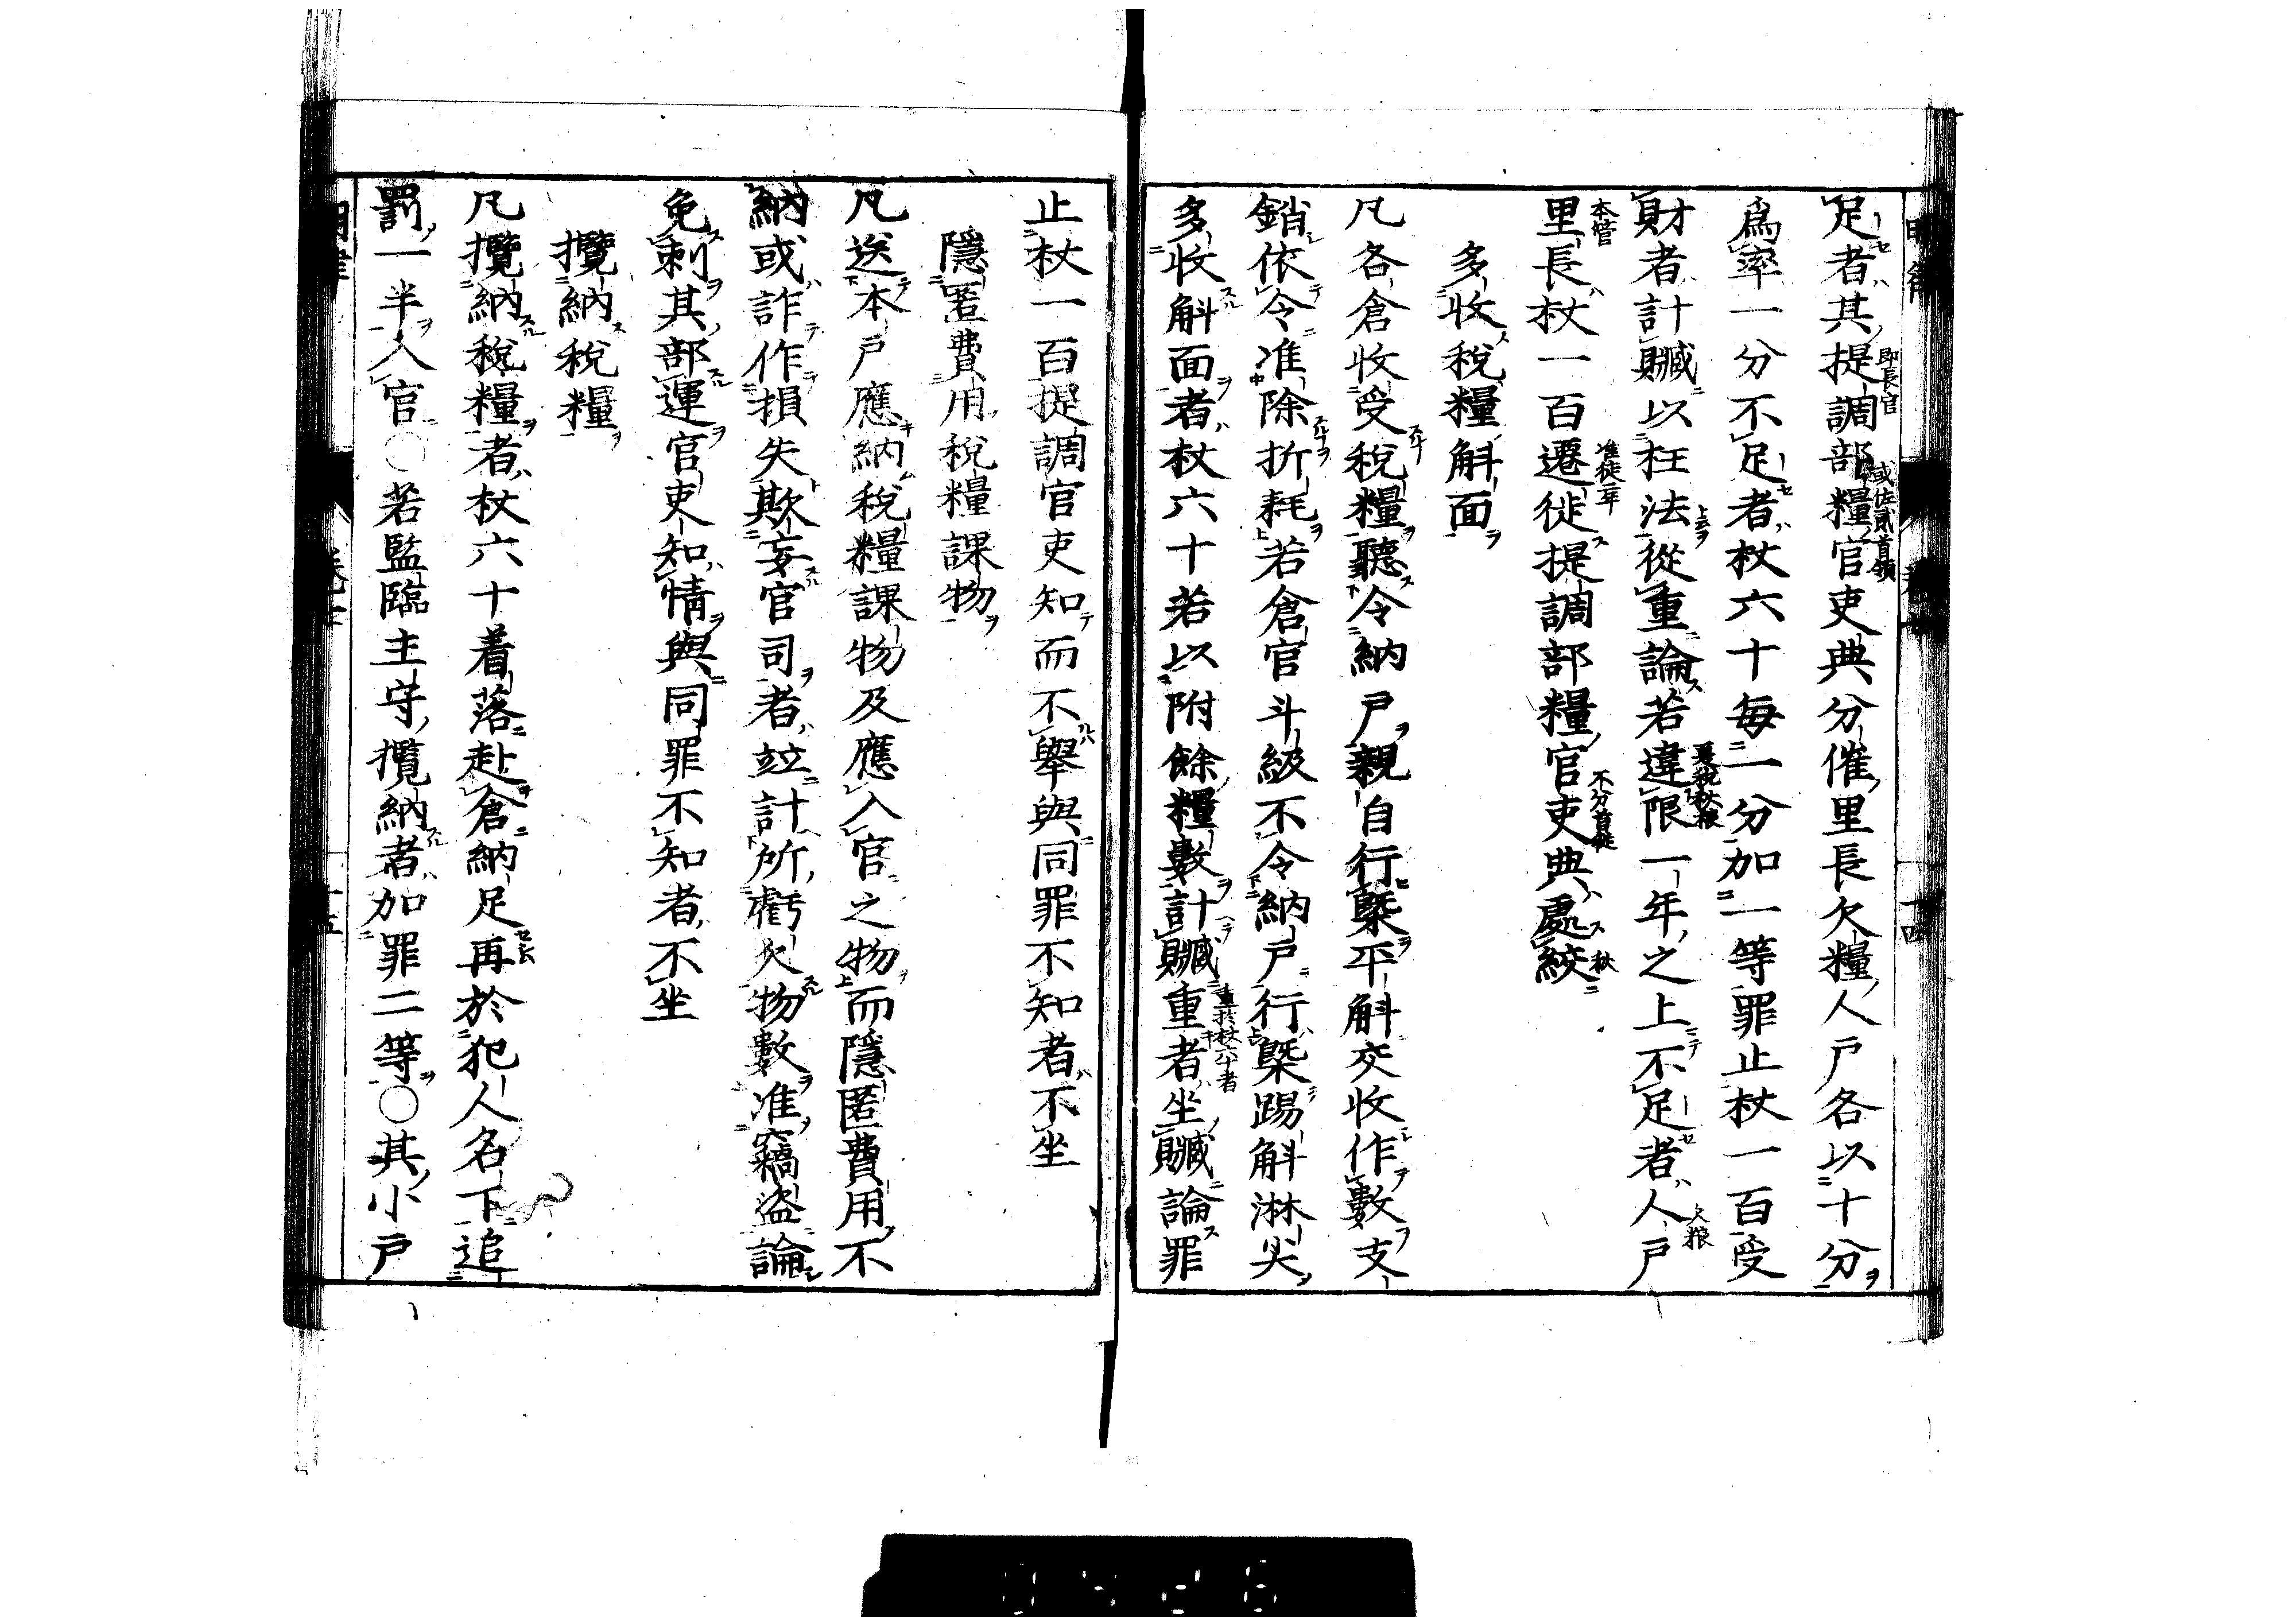 足者其提調部糧官吏典分催里長欠糧人戸各以十分
即長官
或佐貳首領
爲率一分不足者杖六十每一分加一等罪止杖一百受
財者計贓以枉法從重論若違限一年之上不足者人戸
夏稅秋粮
欠粮
里長杖一百遷徙提調部糧官吏典處絞
本管
准徒二年
不分首從
多收稅糧斛面
凡各倉收受稅糧聽令納戸親自行槩平斛交收作數支
銷依令准除折耗若倉官斗級不令納戸行槩踢斛淋尖
多收斛面者杖六十若以附餘糧數計贓重者坐贓論罪
重於杖六十者
止杖一百提調官吏知而不舉與同罪不知者不坐
隱匿費用稅糧課物
凡送本戸應納稅糧課物及應入官之物而隱匿費用不
納或詐作損失欺妄官司者竝計所虧欠物數准竊盜論
免刺其部運官吏知情與同罪不知者不坐
攬納稅糧
凡攬納稅糧者杖六十着落赴倉納足再於犯人名下追
罰一半入官○若監臨主守攬納者加罪二等○其小戸